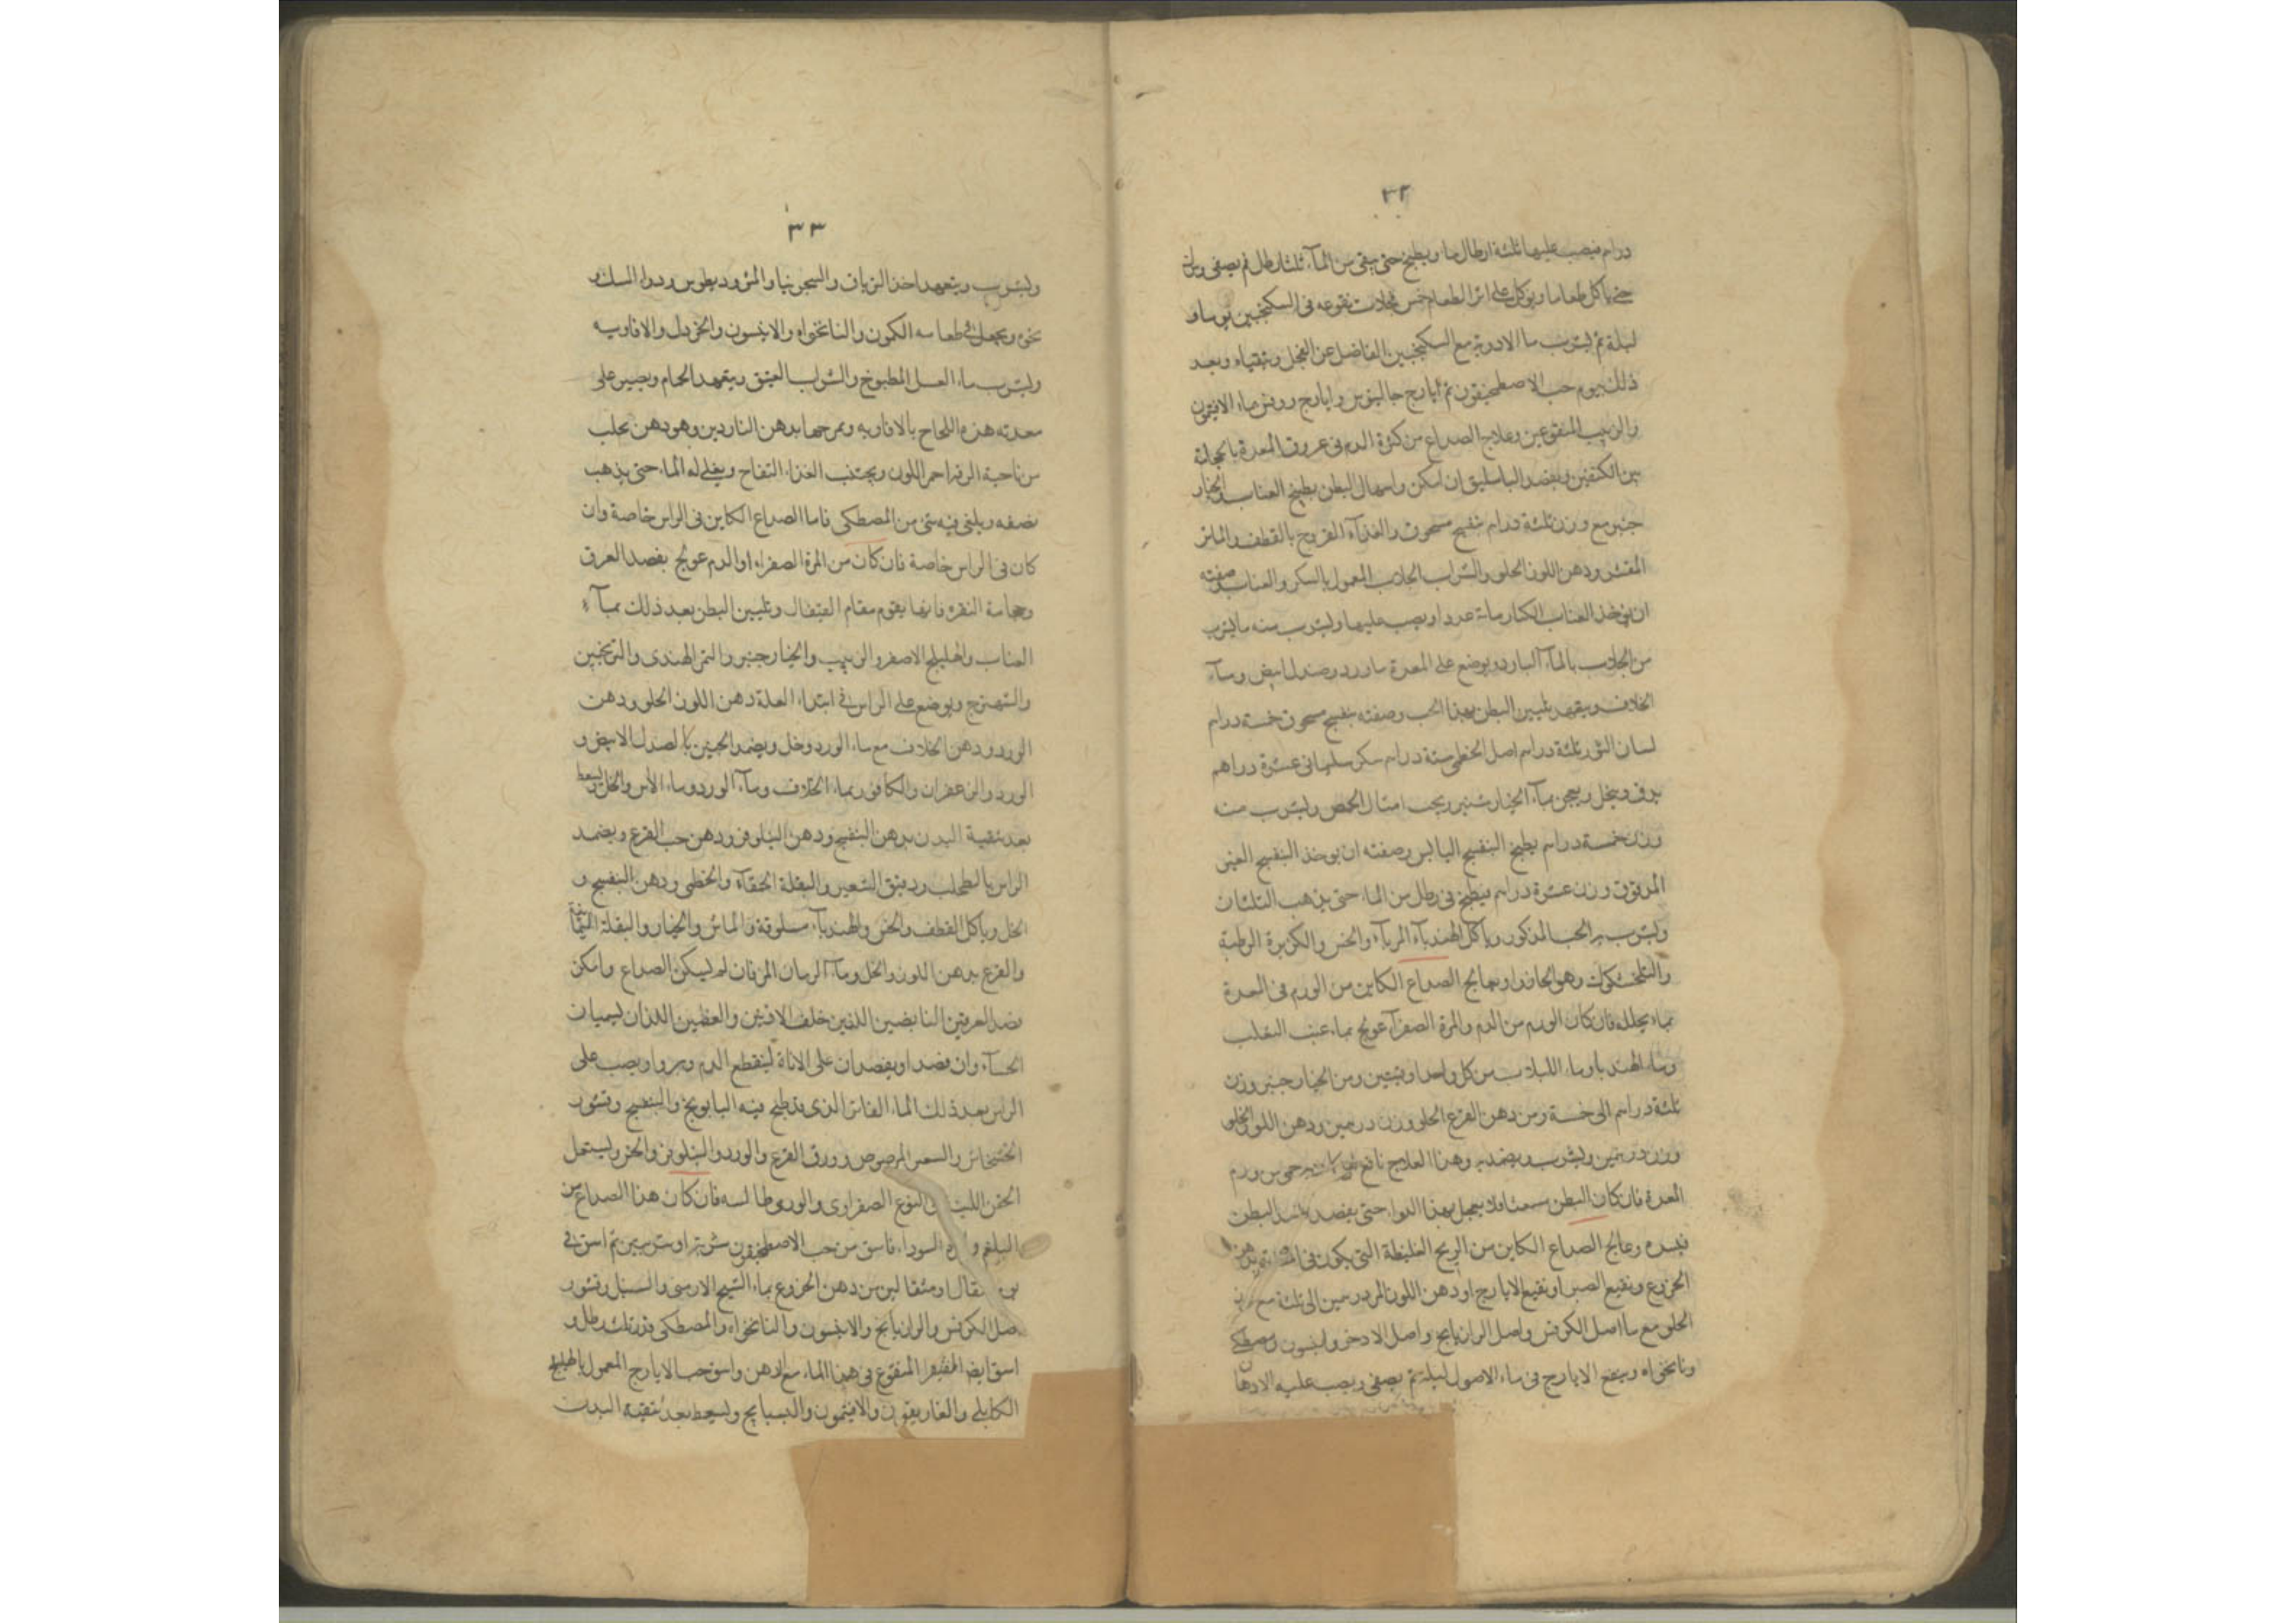 ٣٢
دراهم فيصب عليها ثلثة ارطال ماء ويطبخ حتى يبقى من المآء ثلثا رطل ثم يصفى
حتى ياكل طعاما ويوكل على اثر الطعام خمس نقوعه فى السكنجبين يوما و
ليلة ثم يشرب ما الادوية مع السكنجبين الفاضل عن الفجل ويتقياء وبعد
ذلك بيوم حب الاصطمخيقون ثم ايارج جالينوس وايارج روفس بماء الافتيمون
والزبيب المنقوعين وعلاج الصداع من كثرة الدم فى عروق المعدة بالحجامة
بين الكتفين وبفصد الباسليق ان امكن واسهال البطن بطبيخ العناب والخيار
جنبر مع وزن ثلثة دراهم بنفسج مسحوق والغذآء الفروج بالقطف والماش
المقشر ودهن اللوز الحلو والشراب الجلاب المعمول بالسكر والعناب وصفته
ان يوخذ العناب الكبار مائة عددا ويصب عليها ويشرب منه ما يشرب
من الجلاب بالمآء البارد ويوضع على المعدة ماورد وصندل ابيض ومآء
الخلاف ويتعهد تليين البطن بهذا الحب وصفته بنفسج مسحوق خمسة دراهم
لسان الثور ثلثة دراهم اصل الخطمى ستة دراهم سكر سليمانى عشرة دراهم
يدق وينخل ويعجن بمآء الخيارشنبر ويحبب امثال الحمص ويشرب منه
وزن خمسة دراهم بطبيخ البنفسج اليابس وصفته ان يوخذ البنفسج الغير
المدقوق وزن عشرة دراهم فيطبخ فى رطل من الماء حتى يذهب الثلثان
ويشرب به الحب المذكور وياكل الهندبآء المربآء والخس والكزبرة الرطبة
وهو الجافد او يعالج الصداع الكاين من الورم فى المعدة
بماء يحلله فان كان الورم من الدم والمرة الصفرآء عولج بماء عنب الثعلب
وماء الهندبا وماء اللبلاب من كل واحد اوقيتين ومن الخيارجنبر وزن
ثلثة دراهم الى خمسة ومن دهن القرع الحلو وزن درهمين ودهن اللوز الحلو
وزن درهمين ويشرب ويضمد به وهذا العلاج نافع من ورم
المعدة فان كان البطن فلا يعجل بهذا الدواء حتى يفصد البطن
وعالج الصداع الكاين من الريح الغليظة التى يكون فى بدهن
الخروع ونقيع الصبر او نقيع الايارج او دهن اللوز المر درهمين الى ثلثة مع
الحلو مع ما اصل الكرفس واصل الرازيانج واصل الاذخر وانيسون ومصطكى
ونانخواه وينقع الايارج فى ماء الاصول ليلة ثم يصفى ويصب عليه الادهان
٣٣
ويشرب ويتعهد اخذ الترياق والسجرنيا والمثروديطوس ودواء المسك و
نحوه ويجعل فى طعامه الكمون والنانخواه والانيسون والخردل والافاويه
ويشرب ماء العسل المطبوخ والشراب العتيق ويتعهد الحمام ويصير على
معدته هذه اللخاخ بالافاويه ويمرخها بدهن الناردين وهو دهن يجلب
من ناحية الرقه احمر اللون ويجتنب الغذاء النفاخ ويغلى له الماء حتى يذهب
نصفه ويلقى فيه شى من المصطكى فاما الصداع الكاين فى الراس خاصة وان
كان فى الراس خاصة فان كان من المرة الصفراء او الدم عولج بفصد العرق
وحجامة النقره فانها يقوم مقام القيفال وتليين البطن بعد ذلك بمآء
العناب واهليلج الاصفر والزبيب والخيارجنبر والتمر الهندى والترنجبين
والشهترج ويوضع على الراس فى ابتداء العلة دهن اللوز الحلو ودهن
الورد ودهن الخلاف مع ماء الورد وخل ويضمد الجبين بالصندل الابيض و
الورد والزعفران والكافور بماء الخلاف ومآء الورد وماء الآس والخل ويسعط
بعد تنقية البدن بدهن البنفسج ودهن النيلوفر ودهن حب القرع ويضمد
الراس بالطحلب ودقيق الشعير والبقلة الحمقآء والخطمى ودهن البنفسج و
الخل وياكل القطف والخس والهندبآء مسلوقة والماش والخيار والبقلة اليمانية
والقرع بدهن اللوز والخل ومآء الرمان المز فان لم يسكن الصداع وامكن
فصد العرقين النابضين الذين خلف الاذنين والعظمين اللذان يسميان
الحسآء وان فصدا ويفصدان على الاناة لينقطع الدم ويصب على
الراس بعد ذلك الماء الفاتر الذى قد طبخ فيه البابونج والبنفسج وقشور
الخشخاش والشعير المرضوض وورق القرع والورد والنيلوفر والخس ويستعمل
الحقن اللينة فى النوع الصفراوى والدموى فان كان هذا الصداع من
البلغم و السوداء فاسق من حب الاصطمخيقون شربة او شربتين ثم اسق فى
مثقال او مثقالين من دهن الخروع بماء الشيح الارمنى والسنبل وقشور
اصل الكرفس والرازيانج والانيسون والنانخواه والمصطكى قدر ثلث رطل و
اسق ايضا المنقوع فى هذا الماء مع الدهن واسق حب الايارج المعمول بالهليلج
الكابلى والغاريقون والافتيمون والبسبايج ويسعط بعد تنقية البدن